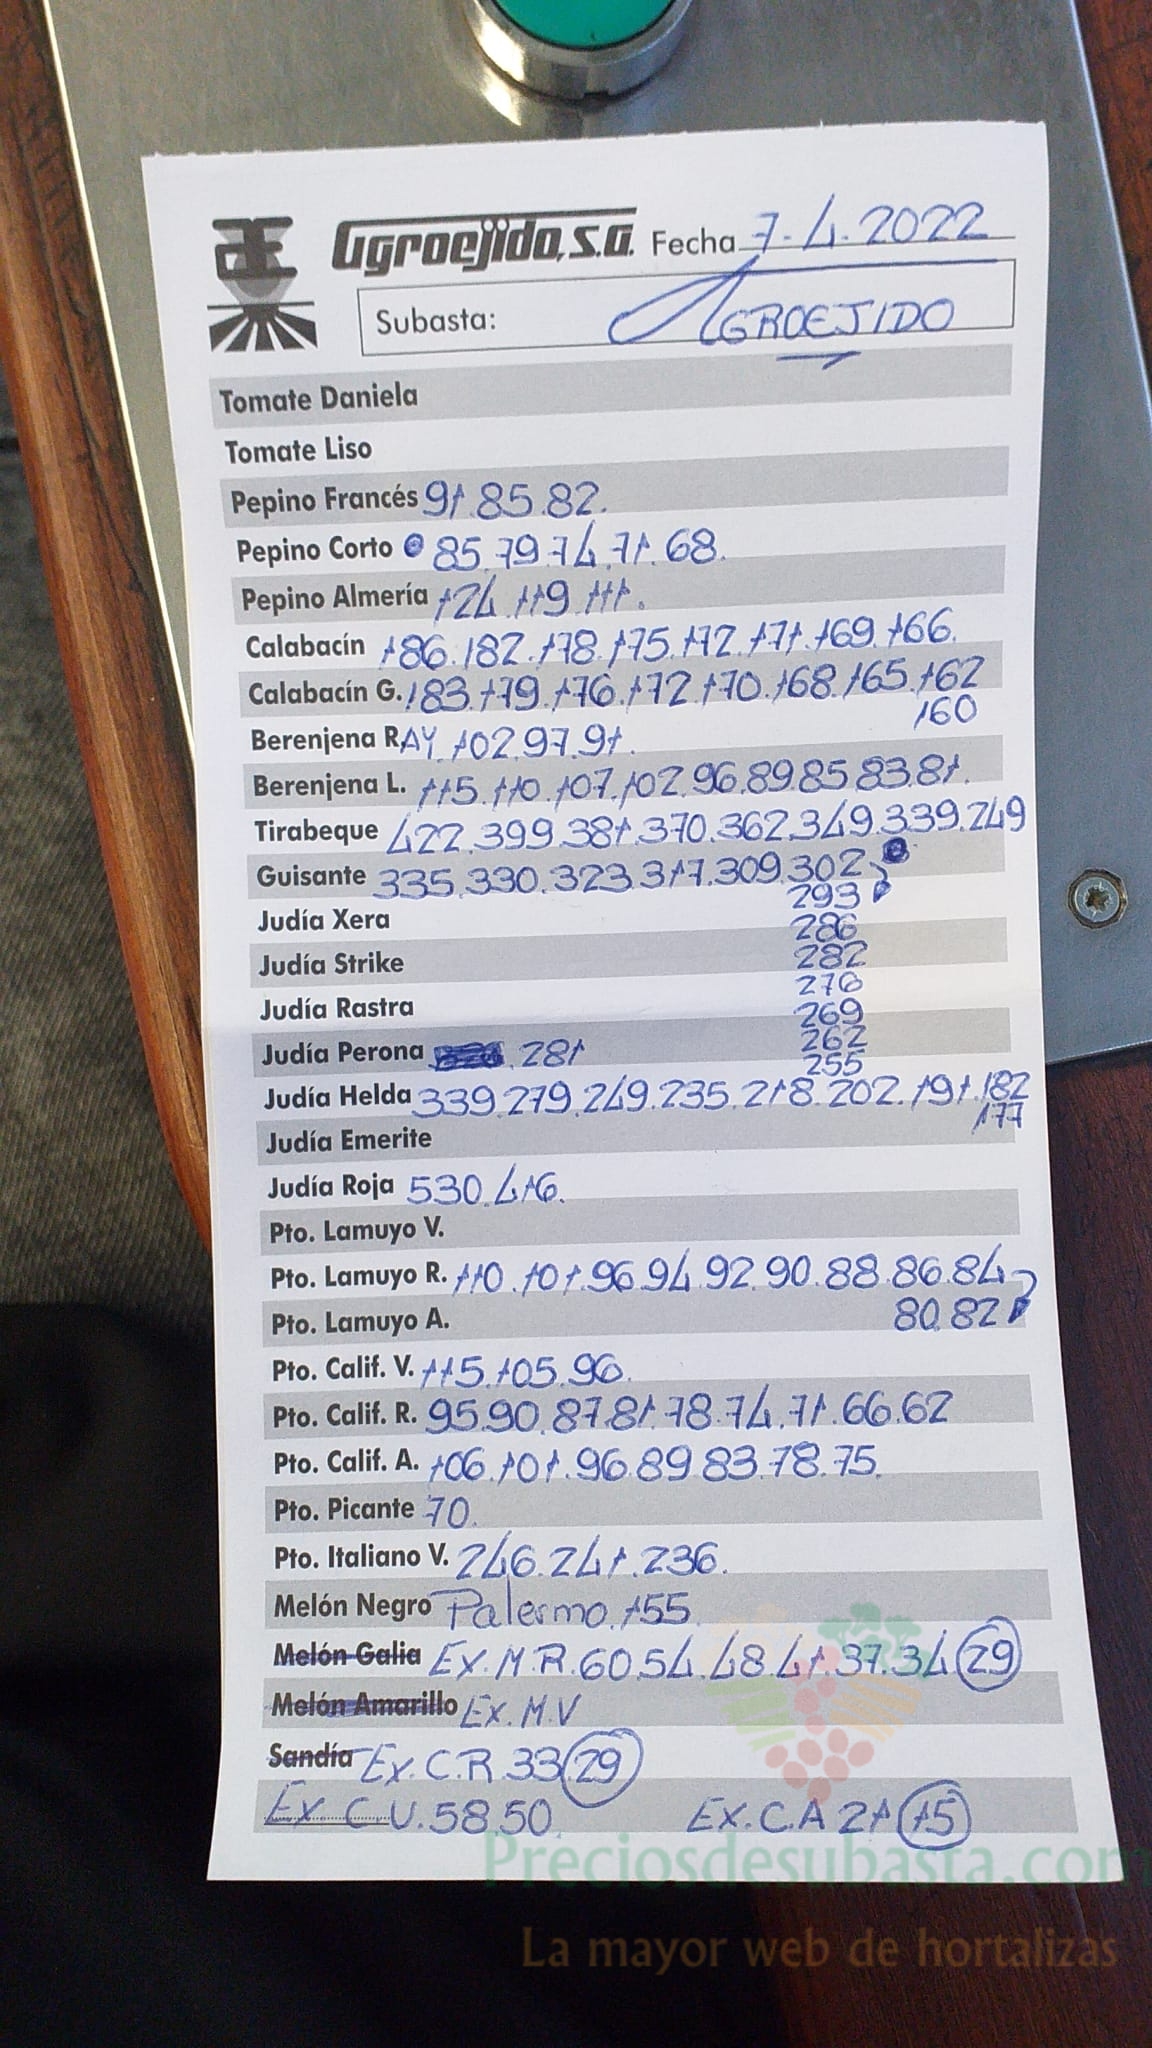 Agroejido, S.A. Fecha 7.4.2022
Subasta: AGROEJIDO
Tomate Daniela
Tomate Liso
Pepino Francés 91.85.82.
Pepino Corto 85.79.74.71.68.
Pepino Almería 124.119.111.
Calabacín 186.182.178.175.172.171.169.166.
Calabacín G. 183.179.176.172.170.168.165.162
160
Berenjena RAY. 102.97.91.
Berenjena L. 115.110.107.102.96.89.85.83.81.
Tirabeque 422.399.381.370.362.349.339.249
Guisante 335.330.323.317.309.302
293
Judía Xera
286
Judía Strike 282
276
Judía Rastra 269
262
Judía Perona . 281
255
Judía Helda 339.279.249.235.218.202.191.182
177
Judía Emerite
Judía Roja 530.416.
Pto. Lamuyo V.
Pto. Lamuyo R. 110.101.96.94.92.90.88.86.84
Pto. Lamuyo A. 80.82
Pto. Calif. V. 115.105.96.
Pto. Calif. R. 95.90.87.81.78.74.71.66.62
Pto. Calif. A. 106.101.96.89.83.78.75.
Pto. Picante 70.
Pto. Italiano V. 246.241.236.
Melón Negro Palermo.155.
Melón Galia Ex.M.R.60.54.48.41.37.34 29
Melón Amarillo Ex.M.V
Sandía Ex.C.R.33 29
Ex C.V.58.50. EX.C.A 21 15
Preciosdesubasta.com
La mayor web de hortalizas